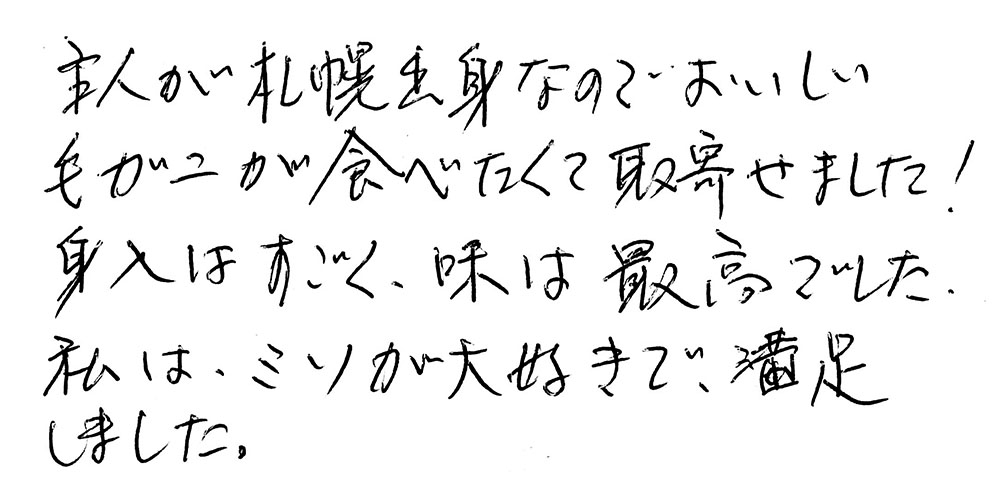 主人が札幌出身なのでおいしい
毛ガニが食べたくて取寄せました!
身入はすごく、味は最高でした.
私は、ミソが大好きで、満足
しました。